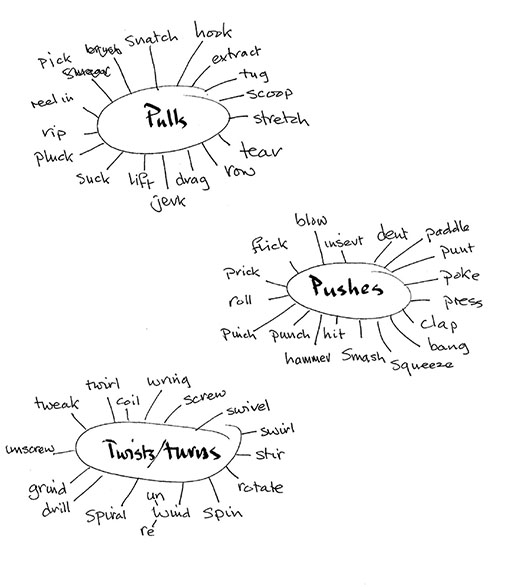 hook
snatch
brush
extract
pick
tug
scoop
reel in
Pulls
stretch
rip
pluck
tear
row
suck
lift
drag
jerk
blow
insert
dent
paddle
flick
punt
prick
poke
Pushes
roll
press
clap
Pinch
punch
hit
bang
hammer
Smash
Squeeze
twirl
wring
coil
screw
tweak
swivel
swirl
unscrew
Twists/turns
stir
grind
rotate
drill
un
Spiral
wind
Spin
re